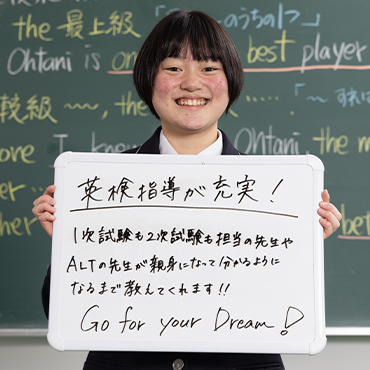 the 最上級
「～のうちの1つ」
Ohtani is one best player
較級 ～～, the
know Ohtani, the
英検指導が充実!
1次試験も2次試験も担当の先生や
ALTの先生が親身になって分かるように
なるまで教えてくれます!!
Go for your Dream!